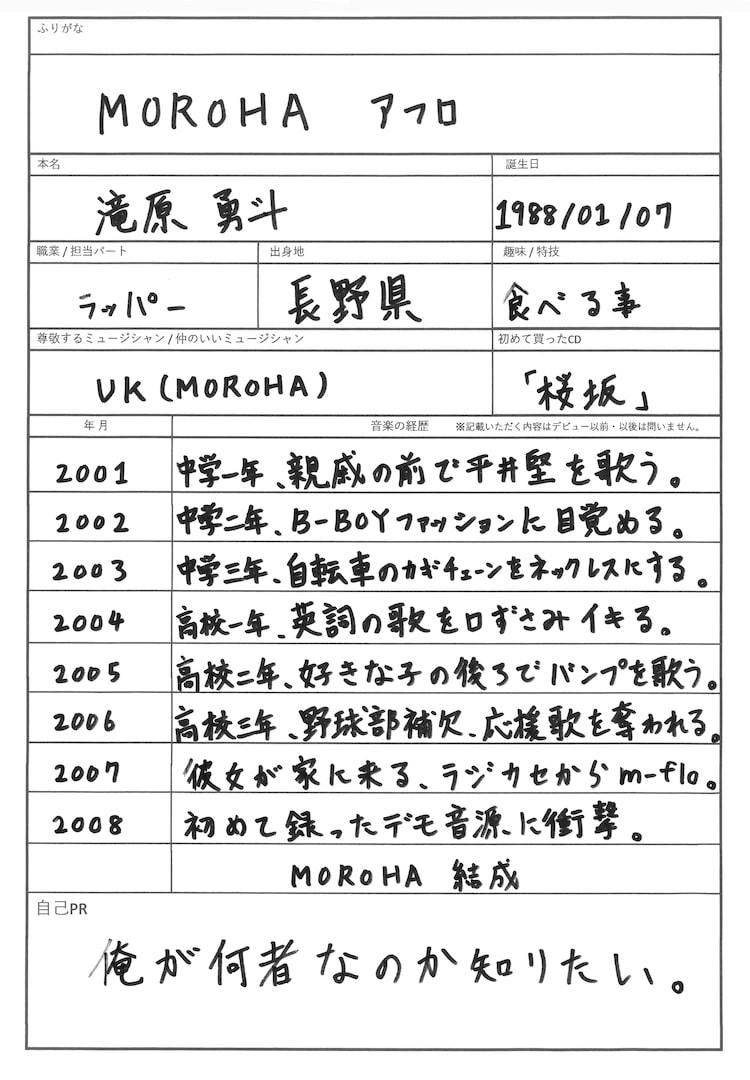 ふりがな
MOROHA アフロ
本名 誕生日
滝原 勇斗 1988/01/07
職業 / 担当パート 出身地 趣味 / 特技
ラッパー 長野県 食べる事
尊敬するミュージシャン / 仲のいいミュージシャン 初めて買ったCD
UK (MOROHA) 「桜坂」
年 月 音楽の経歴 ※記載いただく内容はデビュー以前・以後は問いません。
2001 中学一年、親戚の前で平井堅を歌う。
2002 中学二年、B-BOYファッションに目覚める。
2003 中学三年、自転車のカギチェーンをネックレスにする。
2004 高校一年、英詞の歌を口ずさみイキる。
2005 高校二年、好きな子の後ろでバンプを歌う。
2006 高校三年、野球部補欠、応援歌を奪われる。
2007 彼女が家に来る、ラジカセからm-flo。
2008 初めて録ったデモ音源に衝撃。
MOROHA 結成
自己PR
俺が何者なのか知りたい。